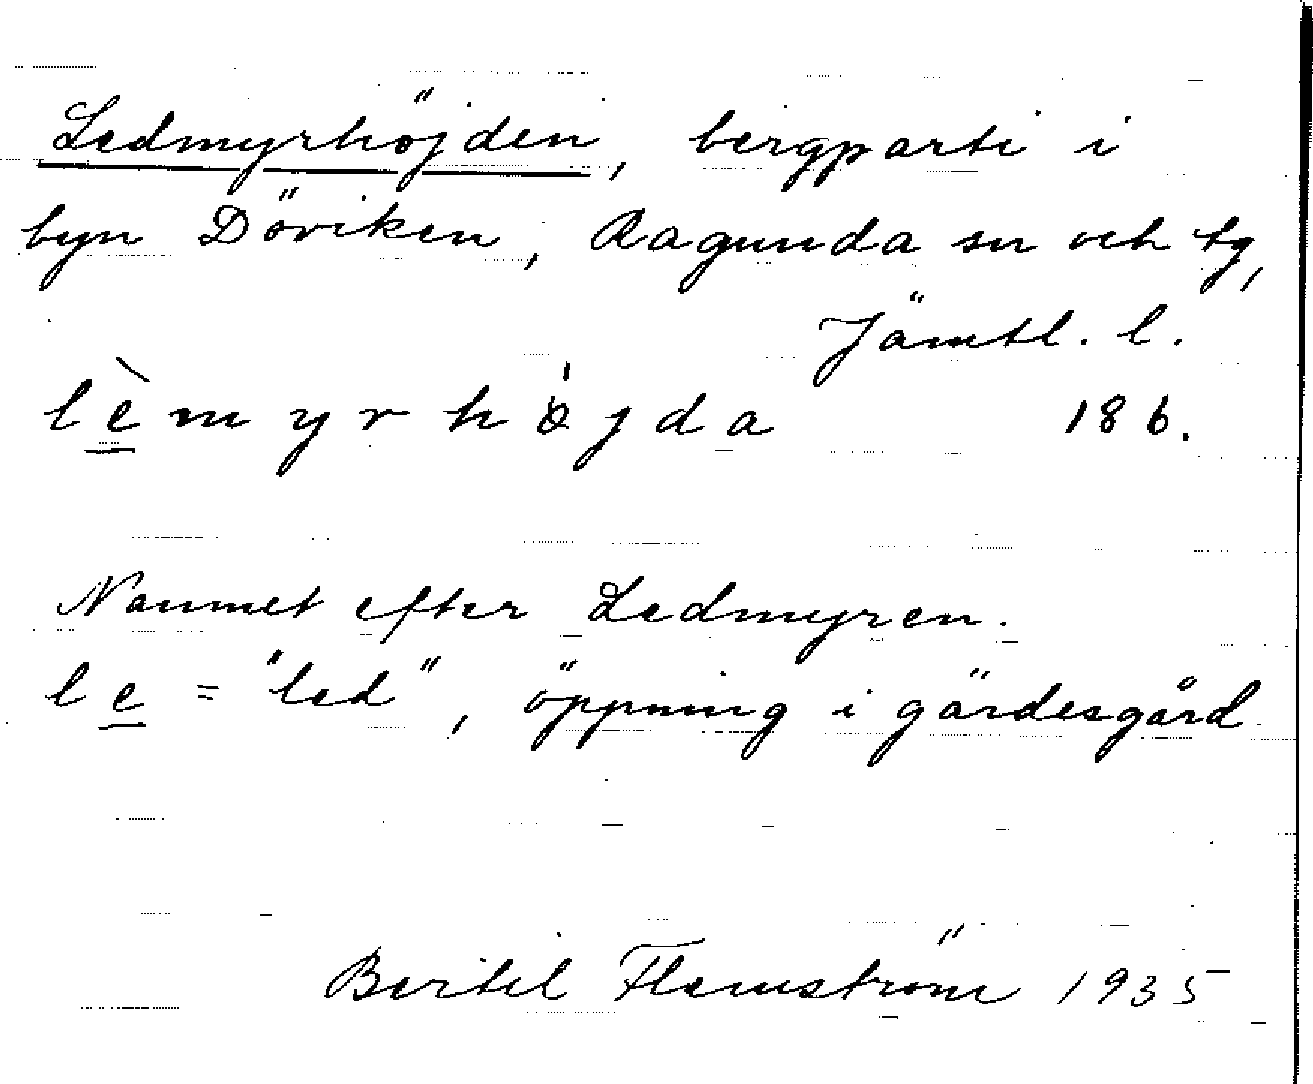 Ledmyrhöjden, bergparti i
byn Döviken, Ragunda sn och tg,
Jämtl. l.
lèmyrhöjda 186.
Namnet efter Ledmyren.
le = "led", öppning i gärdesgård
Bertil Flemström 1935